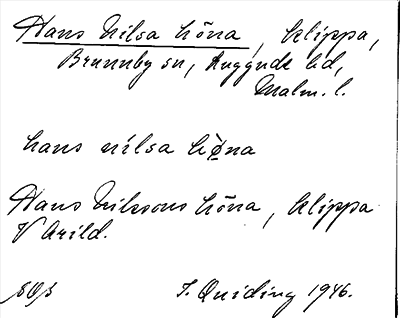 Hans Nilsa hõna, klippa,
Brunnby sn, Luggude hd,
Malm. l.
hans nilsa
Hans Nilssons hõna, klippa
V Arild.
J. Quiding 1946.